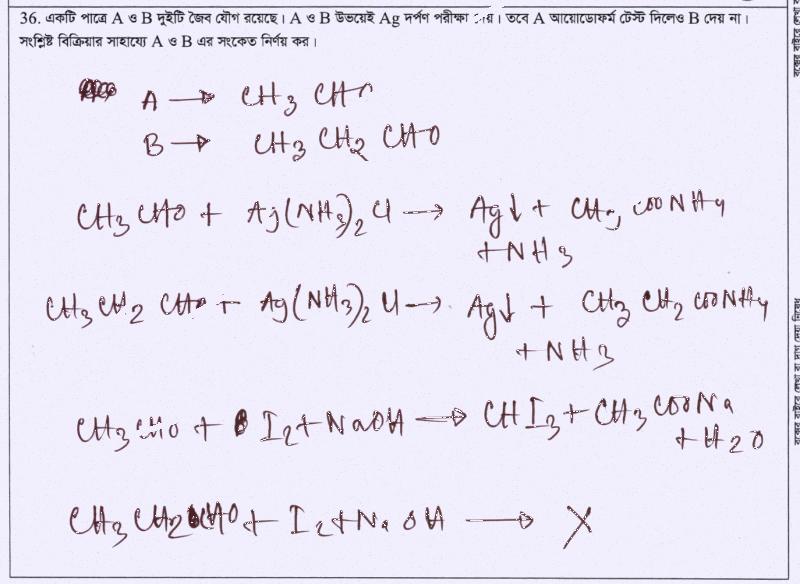 36. একটি পাত্রে A ও B দুইটি জৈব যৌগ রয়েছে। A ও B উভয়েই Ag দর্পণ পরীক্ষা । তবে A আয়োডোফর্ম টেস্ট দিলেও B দেয় না।
সংশ্লিষ্ট বিক্রিয়ার সাহায্যে A ও B এর সংকেত নির্ণয় কর।
A → CH3 CHO
B → CH3 CH2 CHO
CH3 CHO + Ag(NH3)2 Cl → Ag↓ + CH3 COONH4
+ NH3
CH3 CH2 CHO + Ag(NH3)2 Cl → Ag↓ + CH3 CH2 COONH4
+ NH3
CH3 CHO + I2 + NaOH → CHI3 + CH3 COONa
+ H2O
CH3 CH2 CHO + I2 + NaOH → X